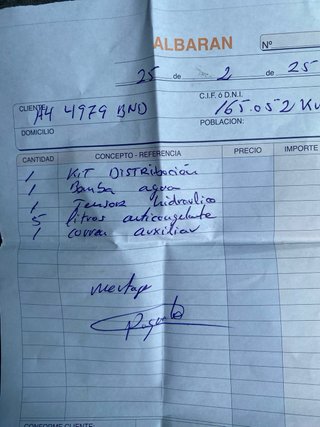 ALBARAN
Nº
25 de 2 de 25
CLIENTE A4 4979 BND
C.I.F. ó D.N.I.
165.052 Km
DOMICILIO
POBLACIÓN:
CANTIDAD CONCEPTO - REFERENCIA PRECIO IMPORTE
1 KIT DISTRIBUCIÓN
1 Bomba agua
1 Tensor hidraulico
5 litros anticongelante
1 correa auxiliar
montaje
CONFORME CLIENTE: